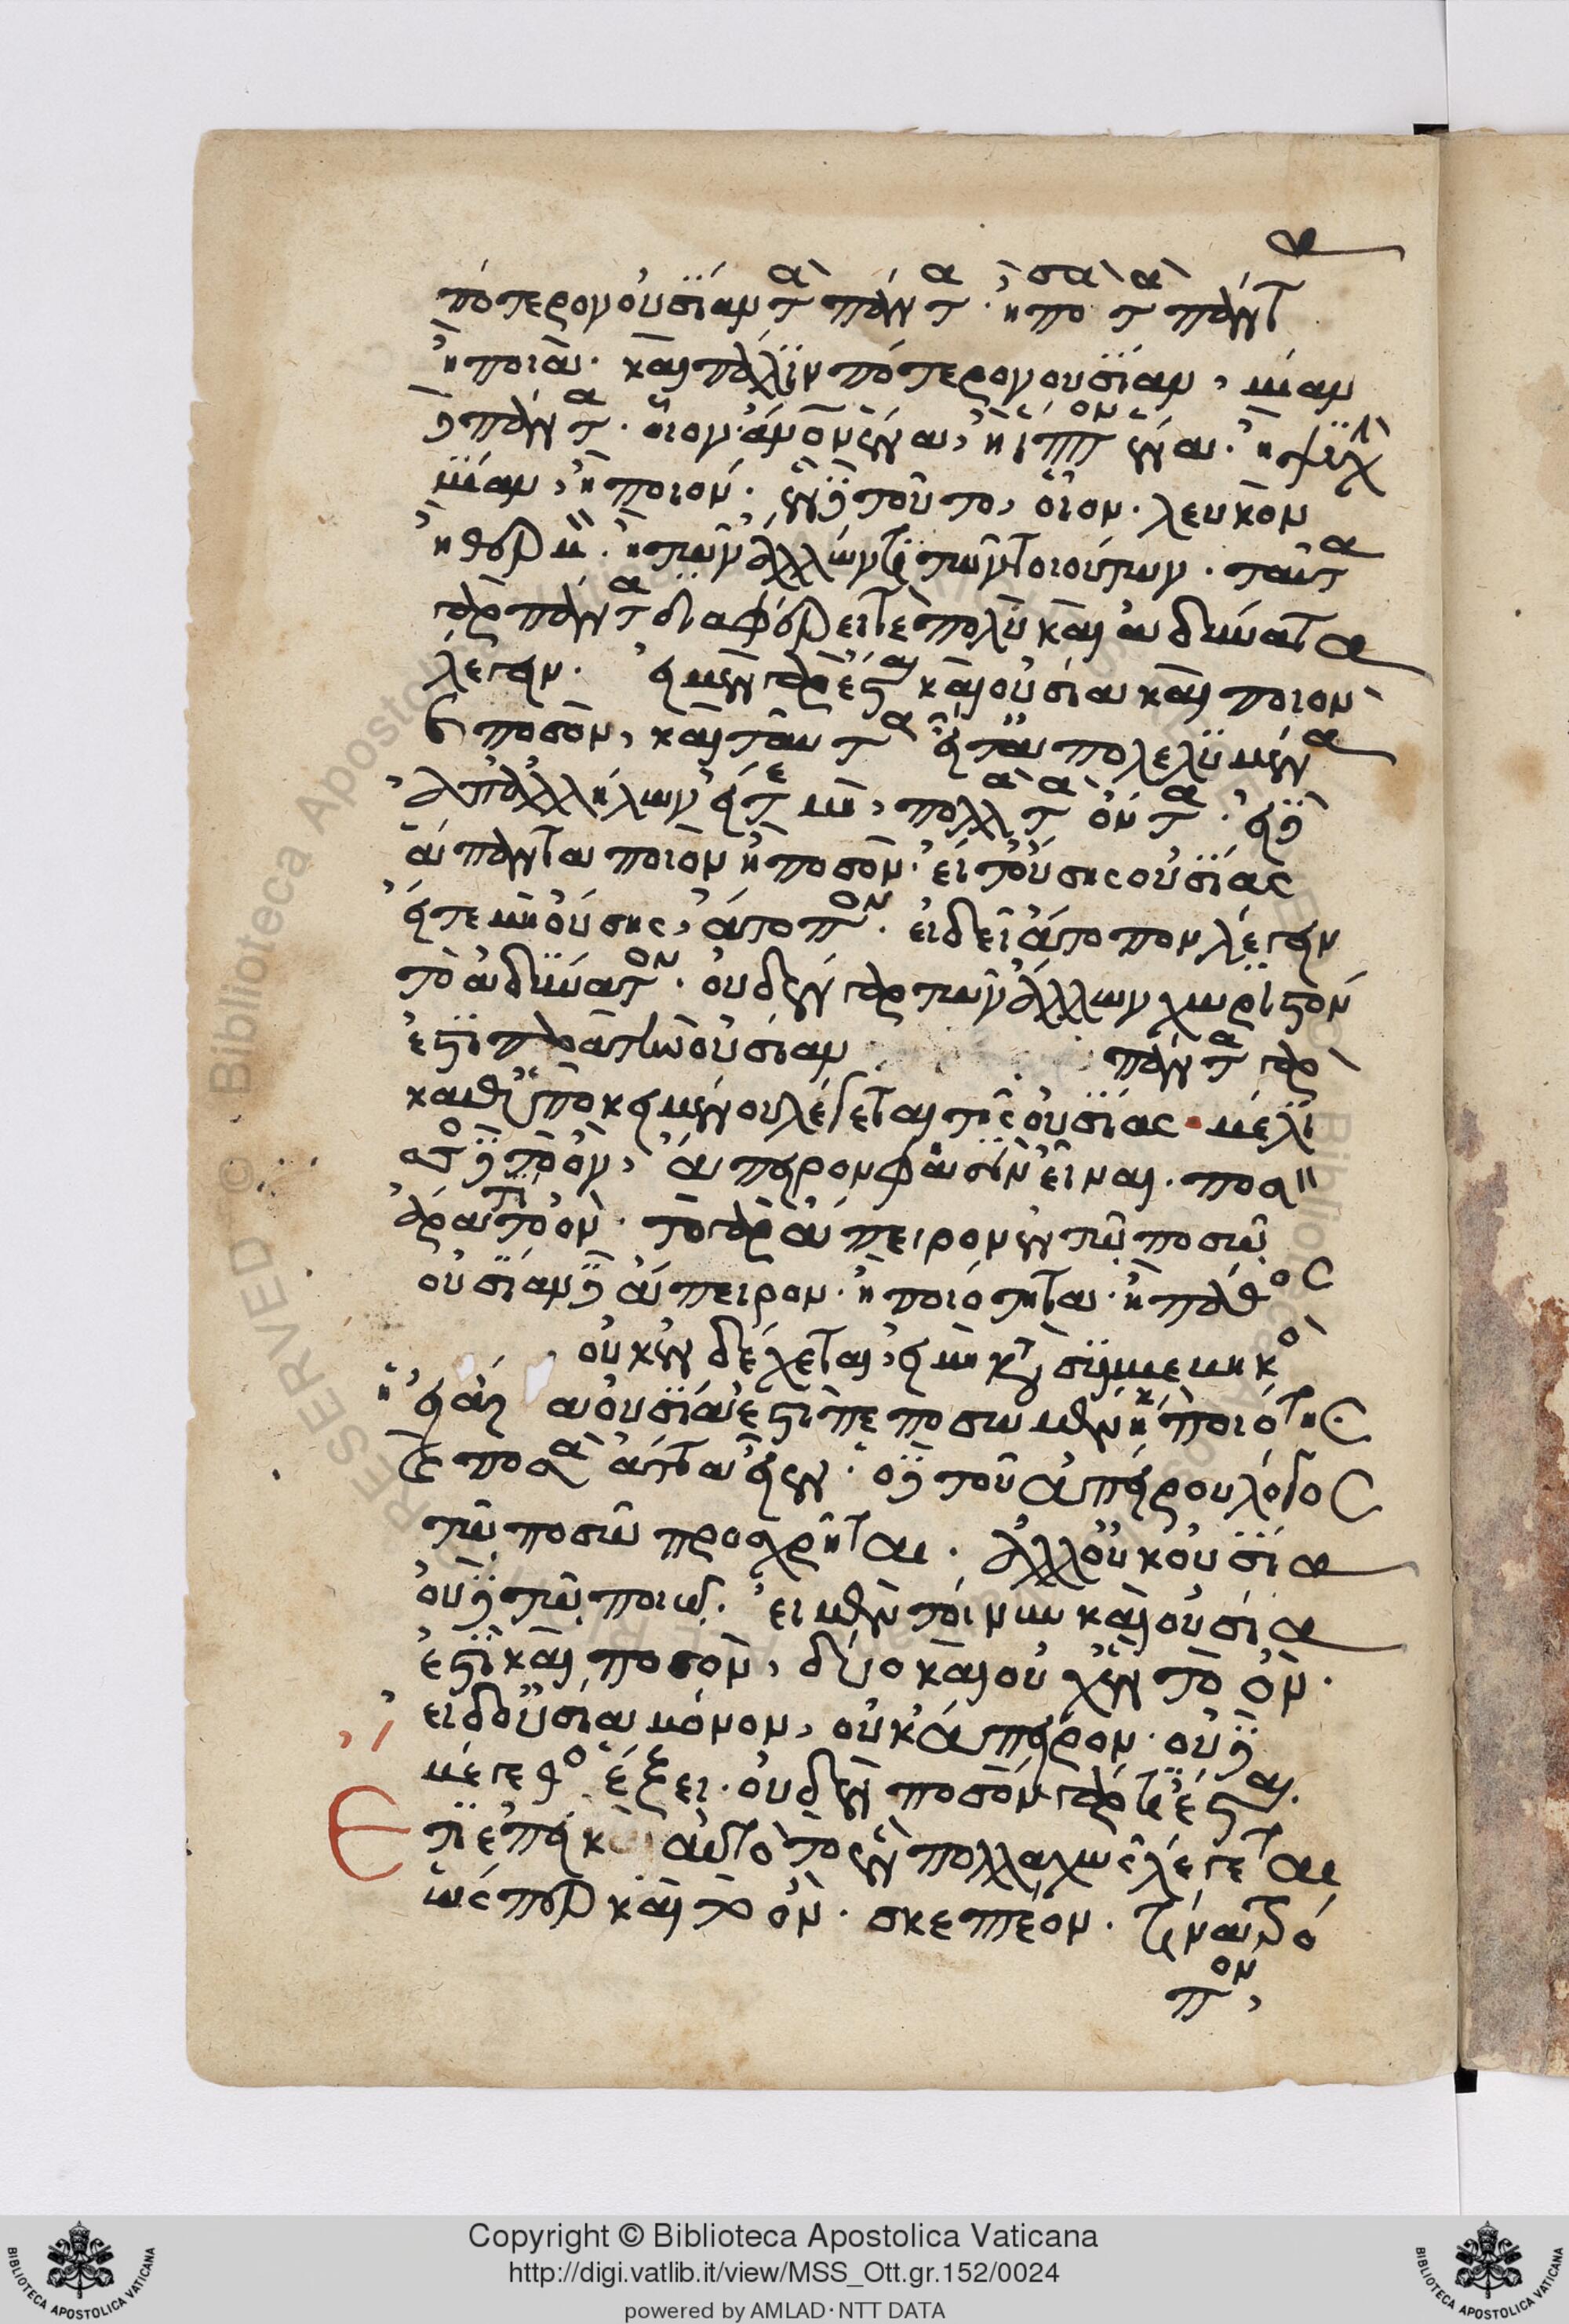 πότερον οὐσίαν τὰ πάντα· ἢ ποσὰ τὰ πάντα
ἢ ποιά· καὶ πάλιν πότερον οὐσίαν, μίαν
τὰ πάντα· οἷον ἄνθρωπον ἕνα, ἢ ἵππον ἕνα· ἢ ψυχὴν
μίαν, ἢ ποιόν· ἓν δὲ τοῦτο, οἷον· λευκὸν
ἢ θερμόν· ἢ τῶν ἄλλων τι τῶν τοιούτων· ταῦτα
γὰρ πάντα διαφέρει τε πολὺ καὶ ἀδύνατα
λέγειν· εἰ μὲν γὰρ ἔσται καὶ οὐσία καὶ ποιὸν
καὶ ποσόν, καὶ ταῦτα εἴτ' ἀπολελυμένα
ἀπ' ἀλλήλων εἴτε μή, πολλὰ τὰ ὄντα· εἰ δὲ
ἅπαντα ποιὸν ἢ ποσόν· εἴτ' οὔσης οὐσίας
εἴτε μὴ οὔσης, ἄτοπον· εἰ δεῖ ἄτοπον λέγειν
τὸ ἀδύνατον· οὐδὲν γὰρ τῶν ἄλλων χωριστόν
ἐστι παρὰ τὴν οὐσίαν πάντα γὰρ
καθ' ὑποκειμένου λέγεται τῆς οὐσίας· μέλι
σσος δὲ τὸ ὄν, ἄπειρόν φησιν εἶναι· ποσὸν
ἄρα τι τὸ ὄν· τὸ γὰρ ἄπειρον ἐν τῷ ποσῷ
οὐσίαν δὲ ἄπειρον· ἢ ποιότητα· ἢ πάθος
οὐκ ἐνδέχεται, εἰ μὴ κατὰ συμβεβηκὸς
εἰ ἅμα οὐσία ἐστί τε ποσὸν μὲν ἢ ποιότης·
καὶ ποσὰ ἄττα εἶεν· ὁ γὰρ τοῦ ἀπείρου λόγος
τῷ ποσῷ προσχρῆται· ἀλλ' οὐκ οὐσία
οὐδὲ τῷ ποιῷ· εἰ μὲν τοίνυν καὶ οὐσία
ἐστὶ καὶ ποσόν, δύο καὶ οὐχ ἓν τὸ ὄν·
εἰ δ' οὐσία μόνον, οὐκ ἄπειρον· οὐδὲ
μέγεθος ἕξει· οὐδὲν ποσὸν γάρ τι ἔσται·
Ετι ἐπεὶ καὶ αὐτὸ τὸ ἓν πολλαχῶς λέγεται
ὥσπερ καὶ τὸ ὄν· σκεπτέον· τίνα τρό
πον,
Copyright © Biblioteca Apostolica Vaticana
http://digi.vatlib.it/view/MSS_Ott.gr.152/0024
powered by AMLAD·NTT DATA